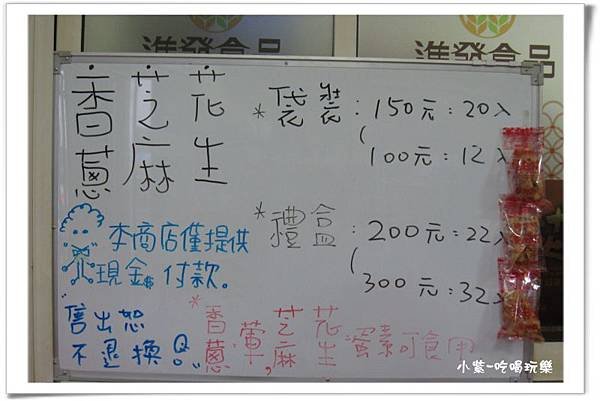 進發食品
進發食品
香 芝 花
蔥 麻 生
*袋裝:150元:20入
100元:12入
*禮盒:200元:22入
300元:32入
本商店僅提供
現金$付款。
售出恕
不退換
*香 葷 芝 花
蔥, 麻 生 蜜素可食用
小紫~吃喝玩樂